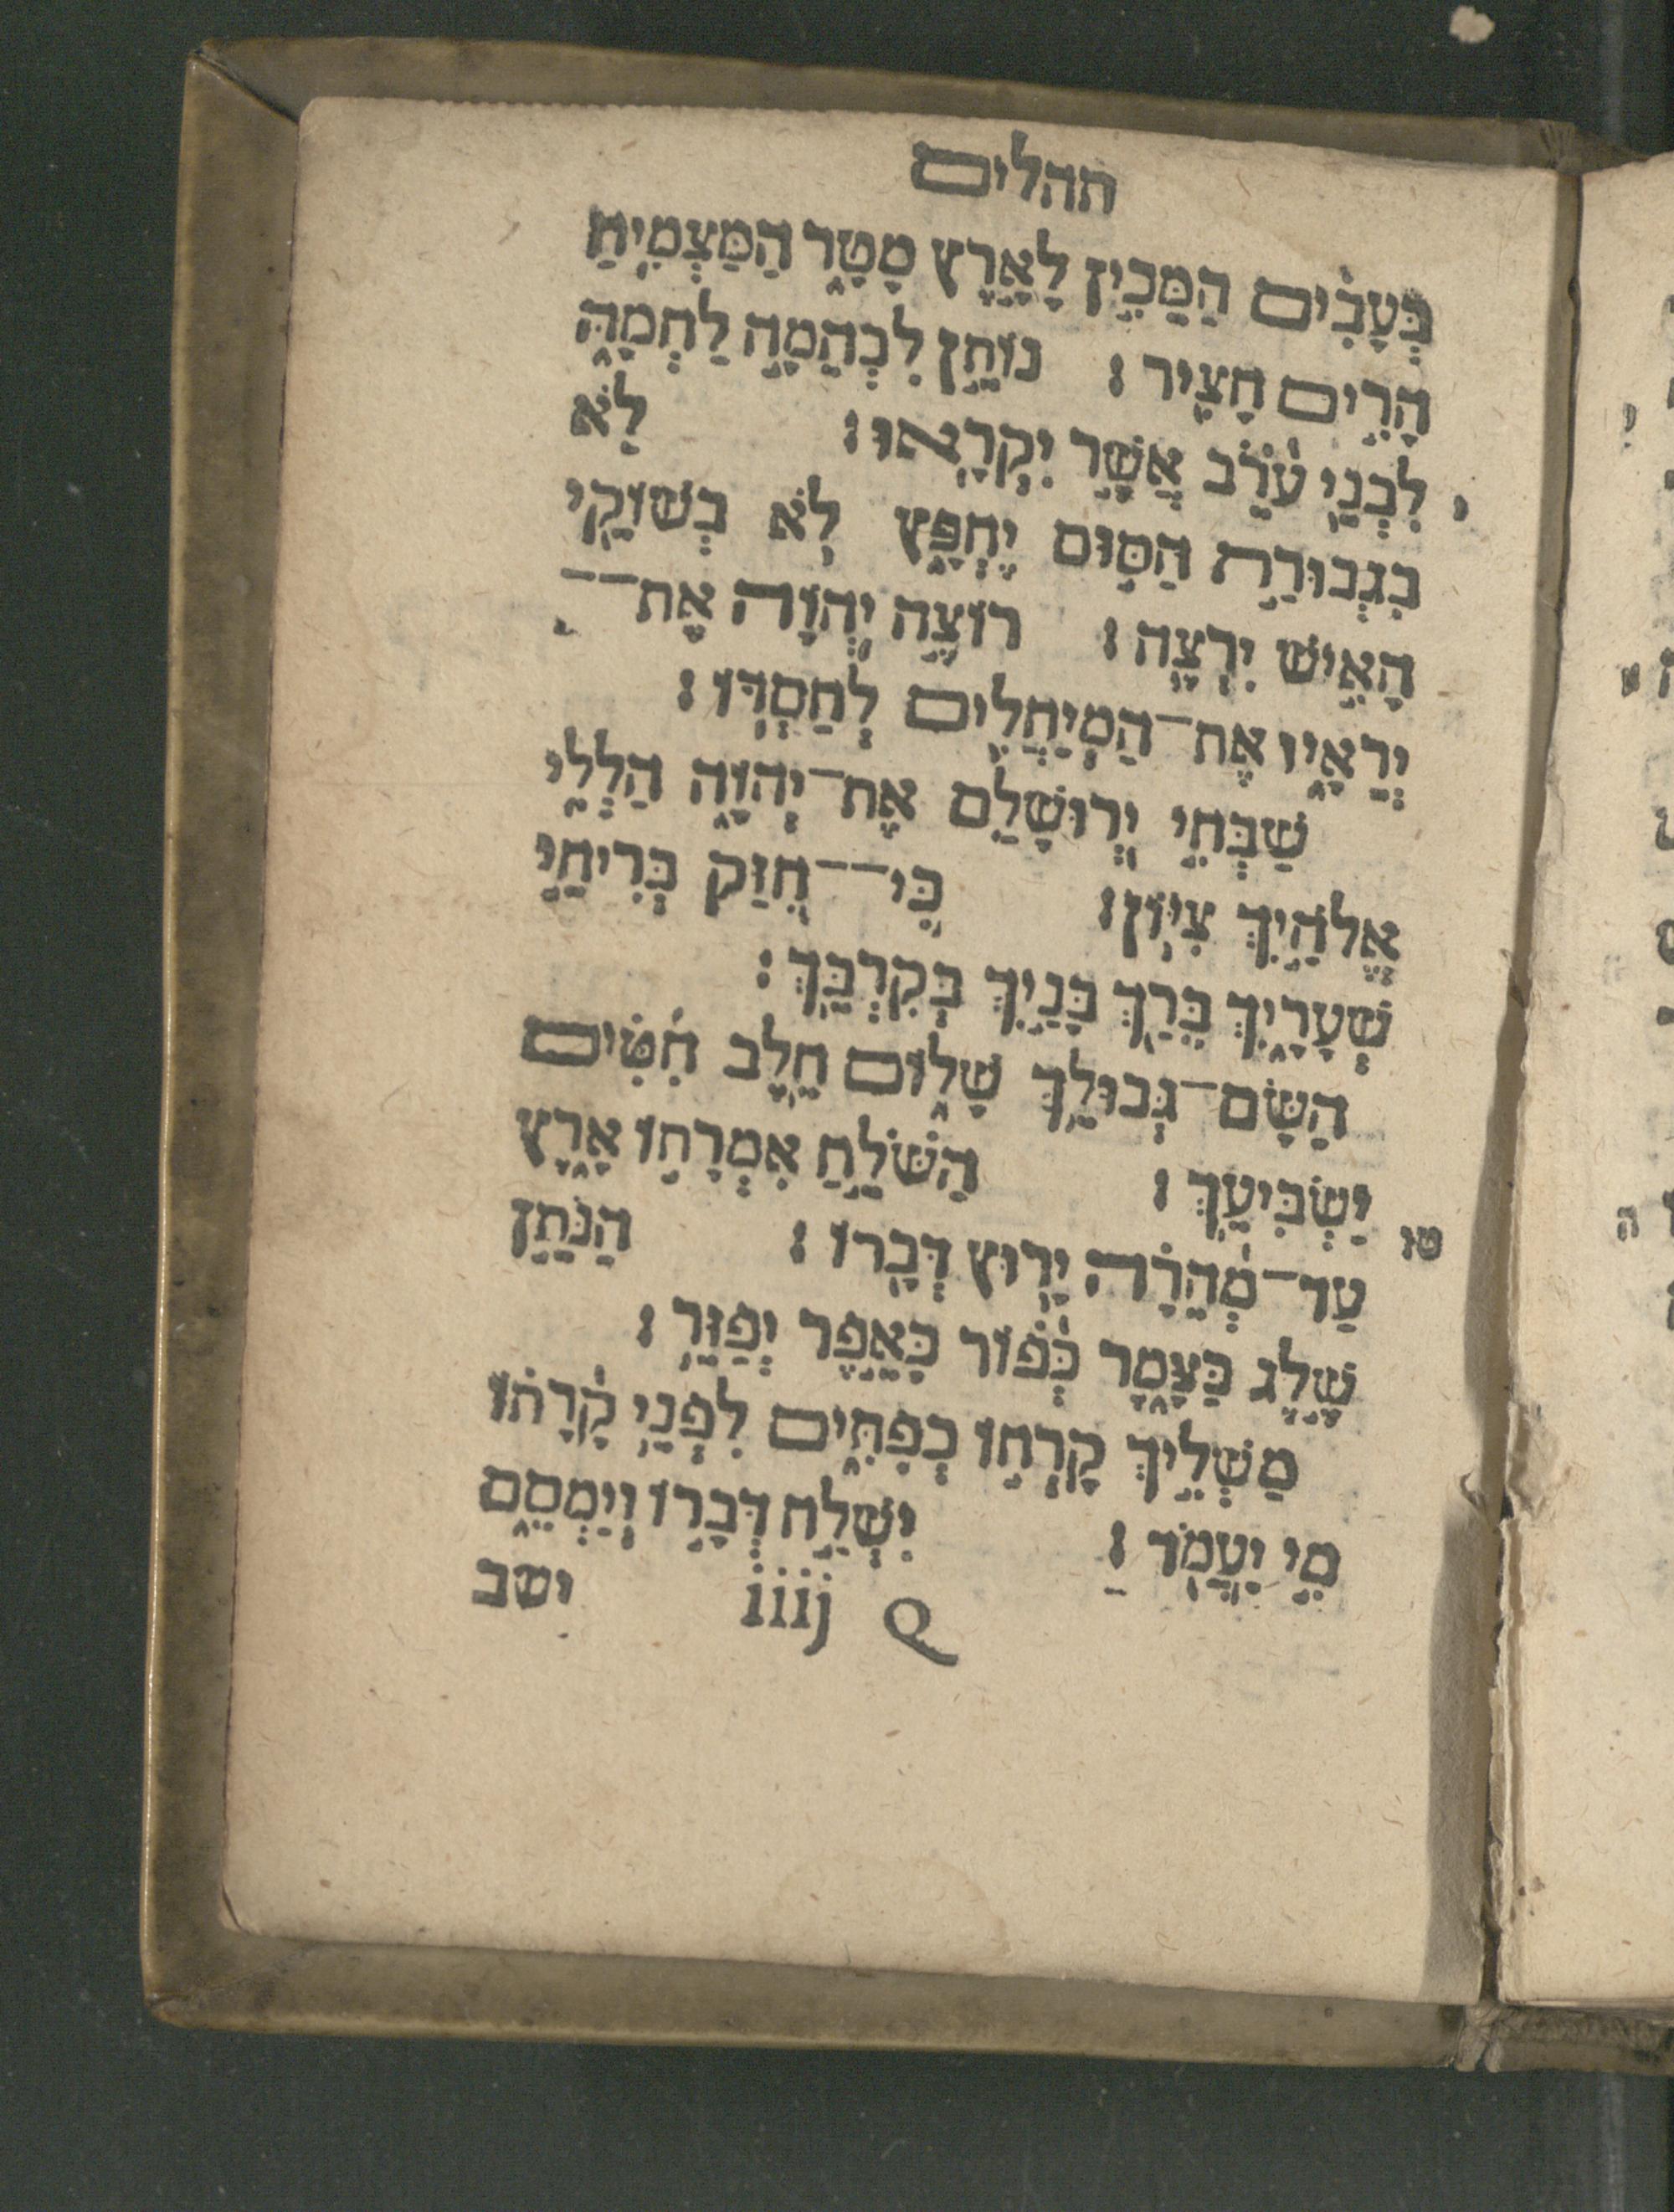 תהלים
בְּעָבִ֗ים הַמֵּכִ֣ין לָאָ֣רֶץ מָטָ֑ר הַמַּצְמִ֖יחַ
הָרִ֣ים חָצִֽיר׃ נוֹתֵ֣ן לִבְהֵמָ֣ה לַחְמָ֑הּ
י לִבְנֵ֥י עֹ֝רֵ֗ב אֲשֶׁ֣ר יִקְרָֽאוּ׃ לֹ֤א
בִגְבוּרַ֣ת הַסּ֣וּס יֶחְפָּ֑ץ לֹֽא בְשׁוֹקֵ֖י
הָאִ֣ישׁ יִרְצֶֽה׃ רוֹצֶ֣ה יְ֭הוָה אֶת־־
יְרֵאָ֑יו אֶת־הַֽמְיַחֲלִ֥ים לְחַסְדּֽוֹ׃
שַׁבְּחִ֣י יְ֭רוּשָׁלַ‍ִם אֶת־יְהוָ֑ה הַֽלְלִ֖י
אֱלֹהַ֣יִךְ צִיּֽוֹן׃ כִּֽי־־חִ֭זַּק בְּרִיחֵ֣י
שְׁעָרָ֑יִךְ בֵּרַ֖ךְ בָּנַ֣יִךְ בְּקִרְבֵּֽךְ׃
הַשָּׂם־גְּבוּלֵ֥ךְ שָׁל֑וֹם חֵ֥לֶב חִ֝טִּ֗ים
יַשְׂבִּיעֵֽךְ׃ הַשֹּׁלֵ֣חַ אִמְרָת֣וֹ אָ֑רֶץ
טו עַד־מְ֝הֵרָ֗ה יָר֥וּץ דְּבָרֽוֹ׃ הַנֹּתֵ֣ן
שֶׁ֣לֶג כַּצָּ֑מֶר כְּ֝פ֗וֹר כָּאֵ֥פֶר יְפַזֵּֽר׃
מַשְׁלִ֣יךְ קַֽרְח֣וֹ כְפִתִּ֑ים לִפְנֵ֥י קָ֝רָת֗וֹ
מִ֣י יַעֲמֹֽד׃ יִשְׁלַ֣ח דְּבָר֣וֹ וְיַמְסֵ֑ם
Q iiij ישב